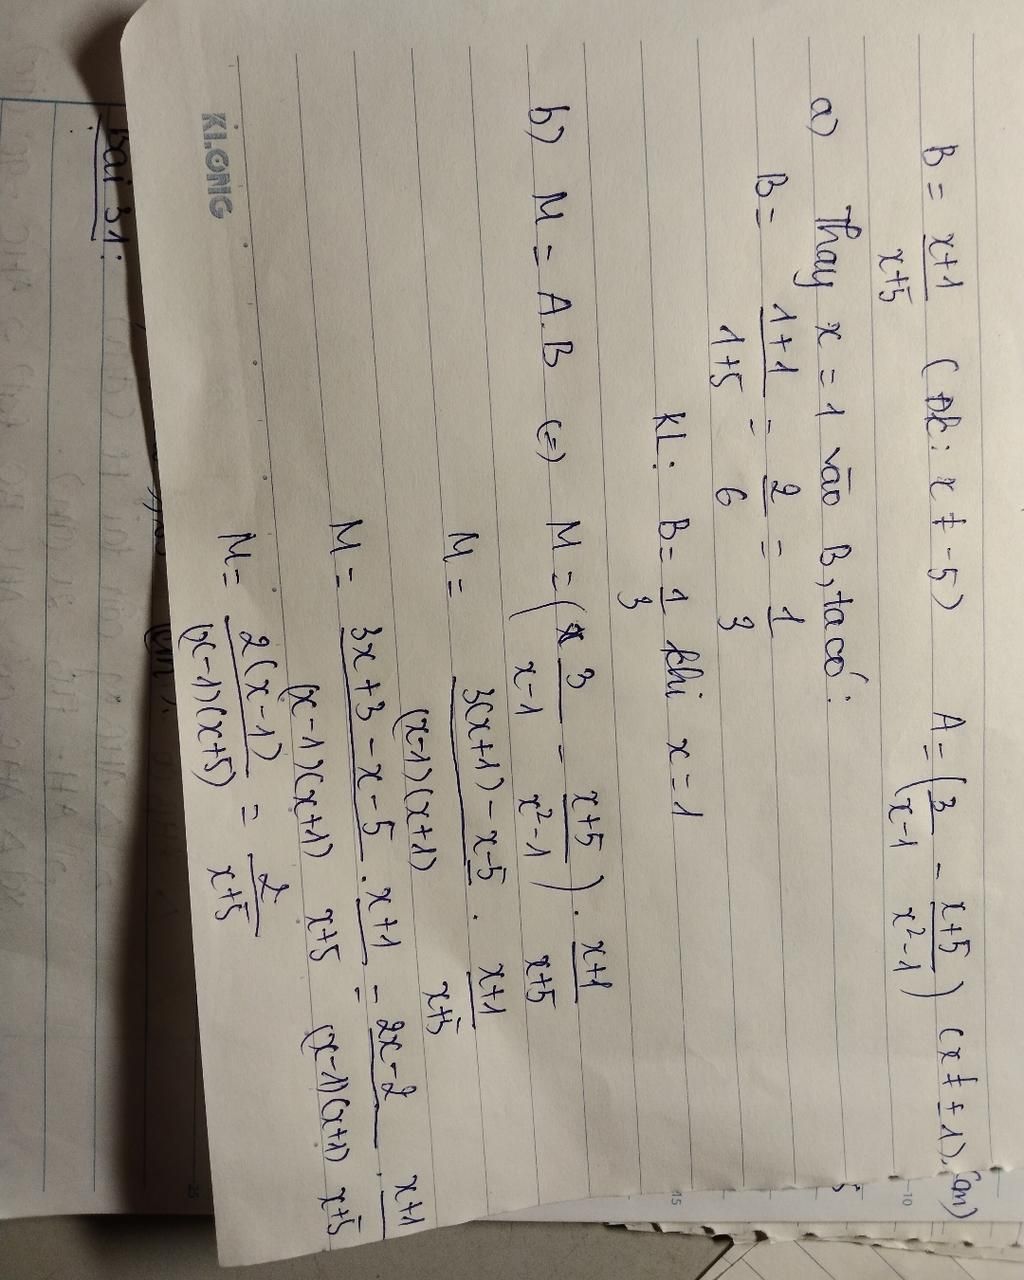 B = \frac{x+1}{x+5} (ĐK: x ≠ -5) A = (\frac{3}{x-1} - \frac{x+5}{x²-1}) (x ≠ ±1). (cm)
a) Thay x = 1 vào B, ta có:
B = \frac{1+1}{1+5} = \frac{2}{6} = \frac{1}{3}
KL: B = \frac{1}{3} khi x = 1
b) M = A.B (=) M = (\frac{3}{x-1} - \frac{x+5}{x²-1}) . \frac{x+1}{x+5}
M = \frac{3(x+1) - x-5}{(x-1)(x+1)} . \frac{x+1}{x+5}
M = \frac{3x+3-x-5}{(x-1)(x+1)} . \frac{x+1}{x+5} = \frac{2x-2}{(x-1)(x+1)} . \frac{x+1}{x+5}
M = \frac{2(x-1)}{(x-1)(x+5)} = \frac{2}{x+5}
KLONG
Bài 31:
10
15
25